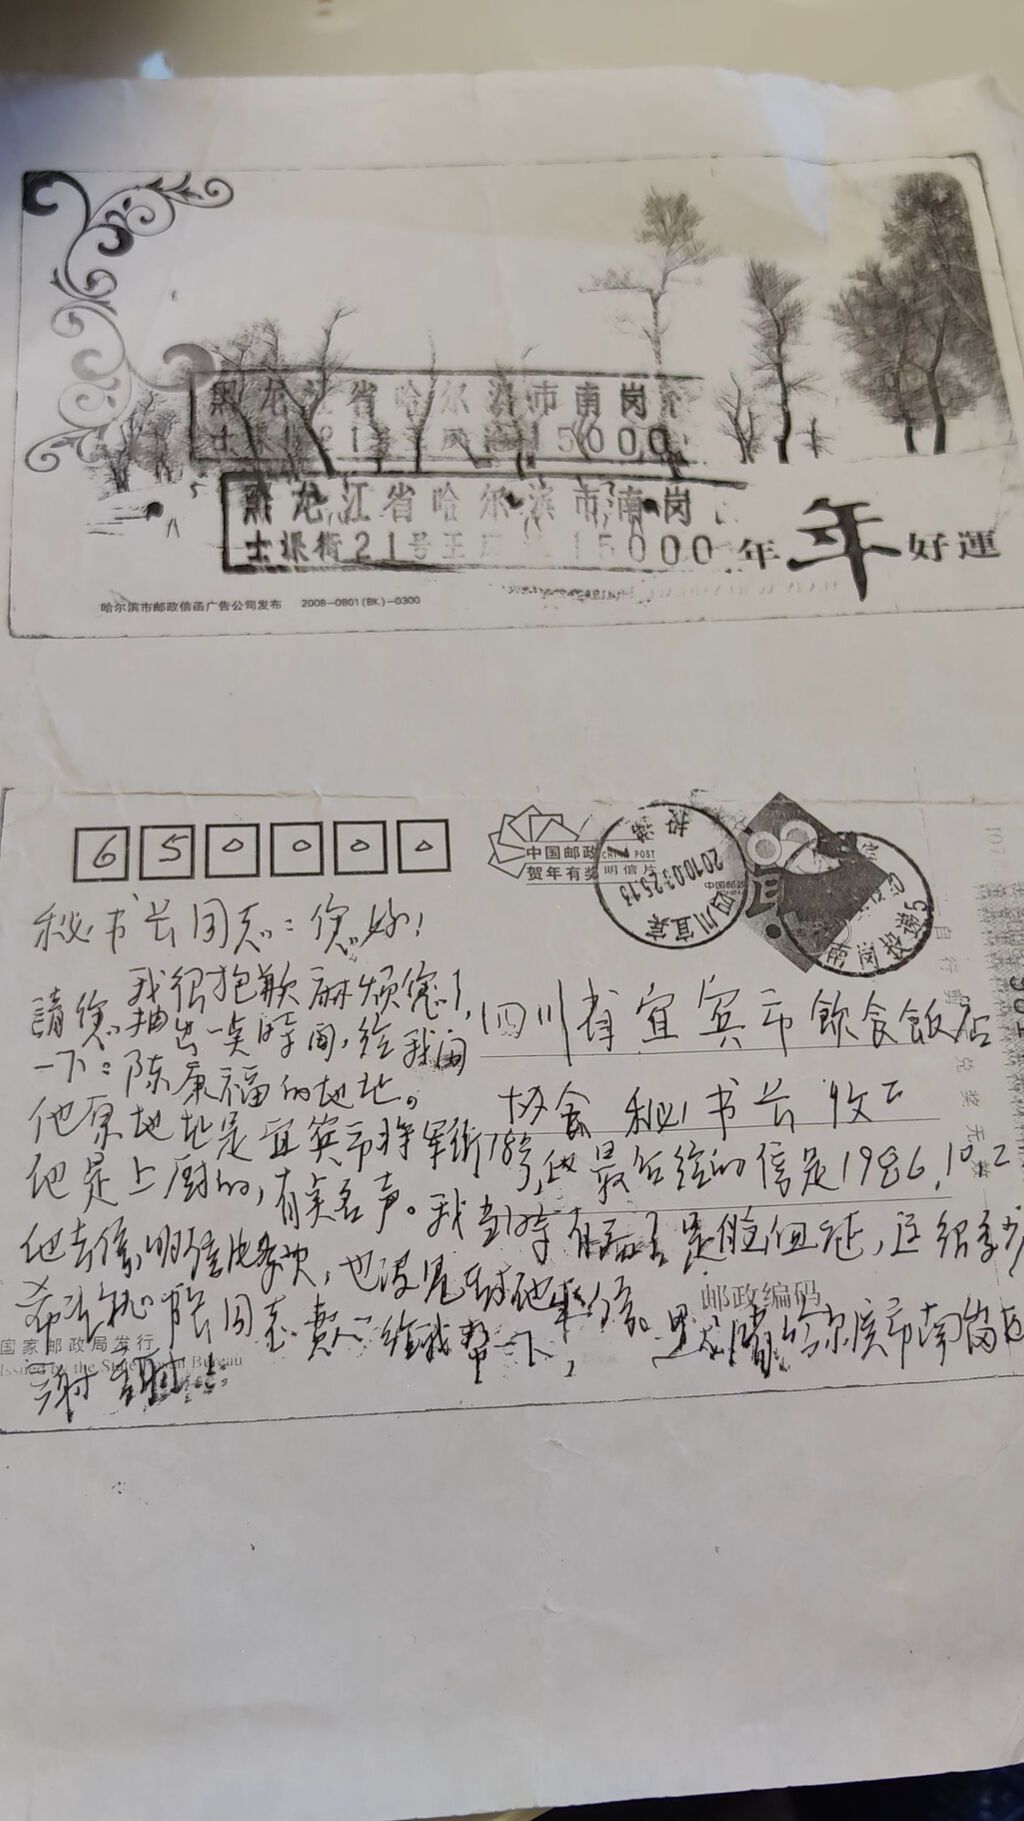 黑龙江省哈尔滨市南岗
21号 15000
黑龙江省哈尔滨市南岗
士课街21号王 15000
年年好運
哈尔滨市邮政信函广告公司发布 2008-0801(BK)-0300
650000
中国邮政 CHINA POST
贺年有奖 明信片
2010.03.23.13
四川宜宾
南岗投递5
秘书长同志：您好！
我很抱歉麻烦您了，
請您抽出一点時间，给我问
一下：陈康福的地址。
他原地址是宜宾市将军街78号，他最后给的信是1986.10.
他是上厨的，有点名声。我当時
他去信，明信片数次，也没见到他来信。
希望秘书长同志 给我帮一下，
謝謝！
四川省宜宾市飲食飯店
协会 秘书长 收
邮政编码
哈尔滨市南岗区
国家邮政局发行
Issued by the State Postal Bureau